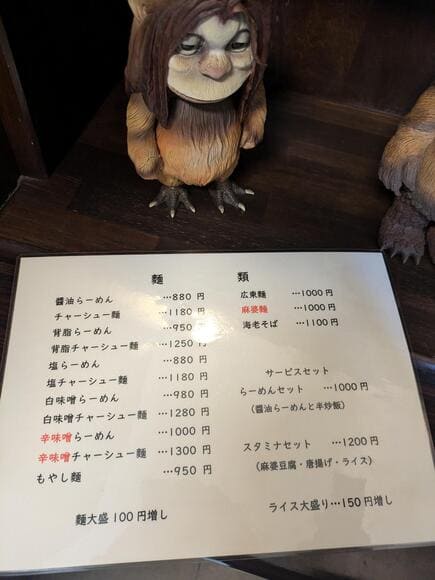 麺類
醤油らーめん …880 円
チャーシュー麺 …1180 円
背脂らーめん …950 円
背脂チャーシュー麺 …1250 円
塩らーめん …880 円
塩チャーシュー麺 …1180 円
白味噌らーめん …980 円
白味噌チャーシュー麺 …1280 円
辛味噌らーめん …1000 円
辛味噌チャーシュー麺 …1300 円
もやし麺 …950 円
麺大盛 100 円増し
広東麺 …1000 円
麻婆麺 …1000 円
海老そば …1100 円
サービスセット
らーめんセット …1000 円
（醤油らーめんと半炒飯）
スタミナセット …1200 円
（麻婆豆腐・唐揚げ・ライス）
ライス大盛り…150 円増し